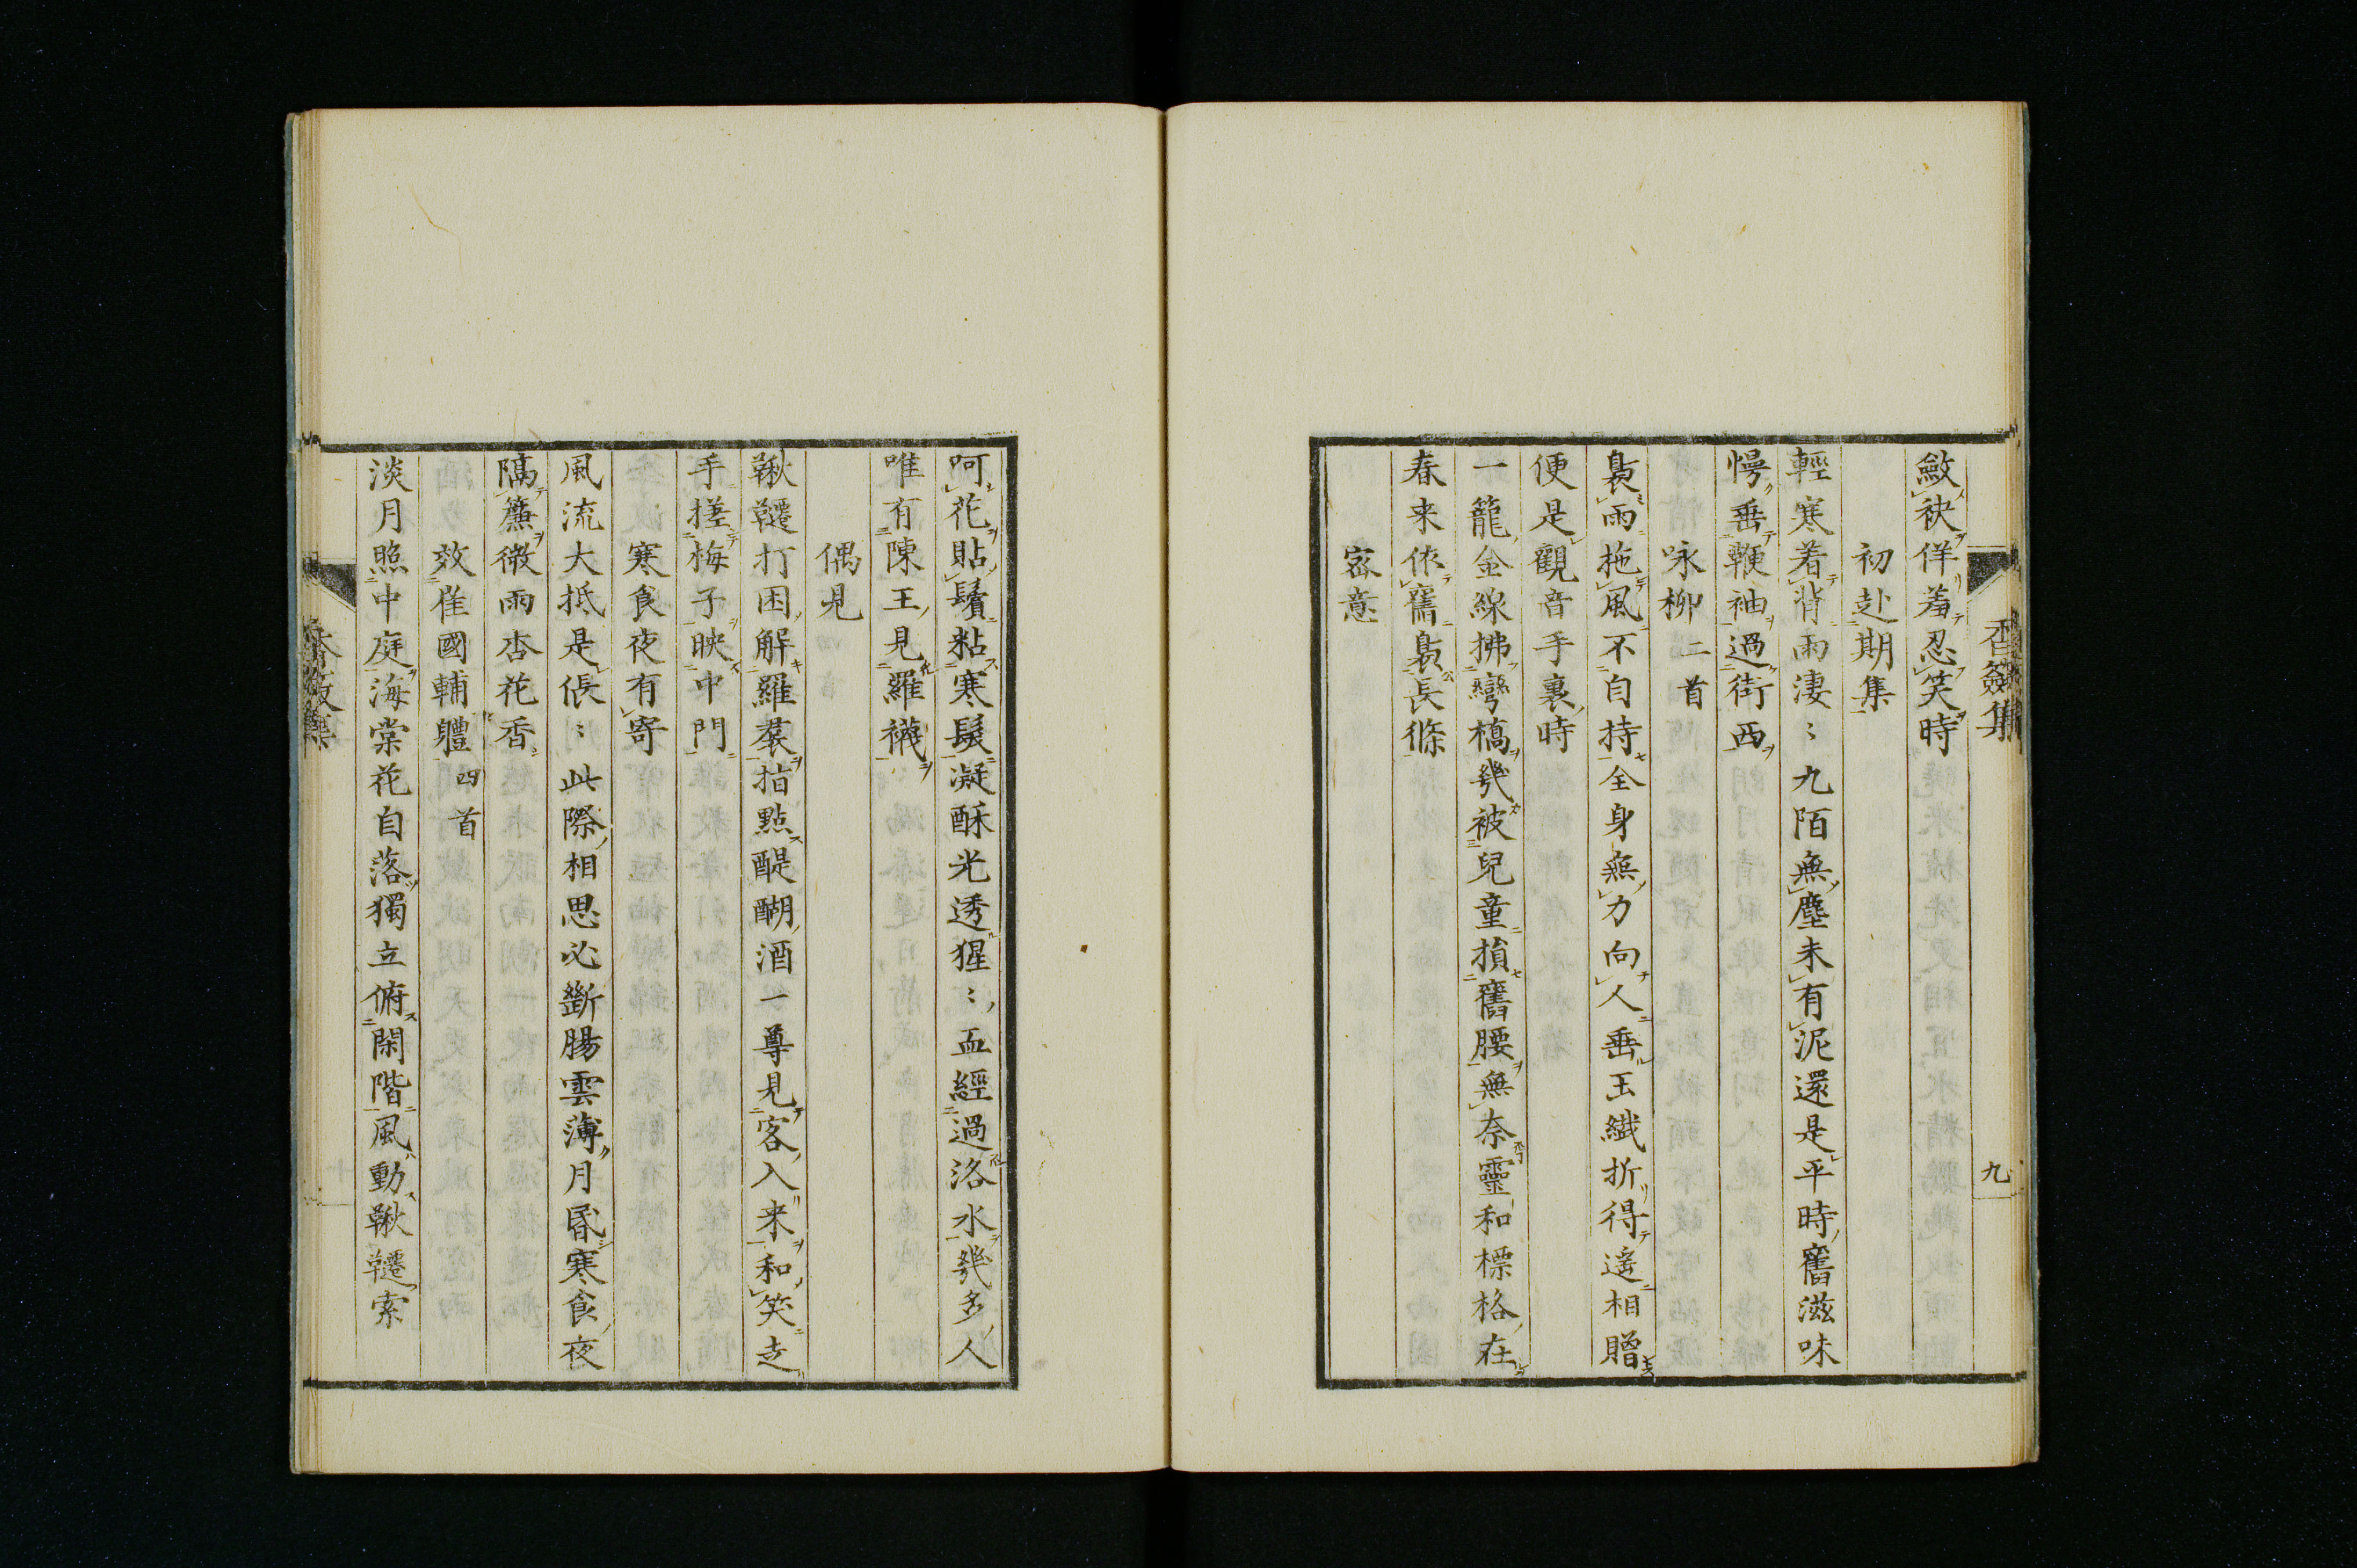 香奩集
九
斂袂佯羞忍笑時
初赴期集
輕寒着背雨淒〻九陌無塵未有泥還是平時舊滋味
慢垂鞭袖過街西
咏柳二首
裊雨拖風不自持全身無力向人垂玉纖折得遙相贈
便是觀音手裏時
一籠金線拂彎橋幾被兒童損舊腰無奈靈和標格在
春来依舊裊長條
宻意
呵花貼鬢粘寒髮凝酥光透猩〻血經過洛水幾多人
唯有陳王見羅襪
偶見
鞦韆打困解羅裙指點醍醐酒一尊見客入来和笑走
手搓梅子映中門
寒食夜有寄
風流大抵是倀〻此際相思必斷腸雲薄月昏寒食夜
隔簾微雨杏花香
效崔國輔體四首
淡月照中庭海棠花自落獨立俯閑階風動鞦韆索